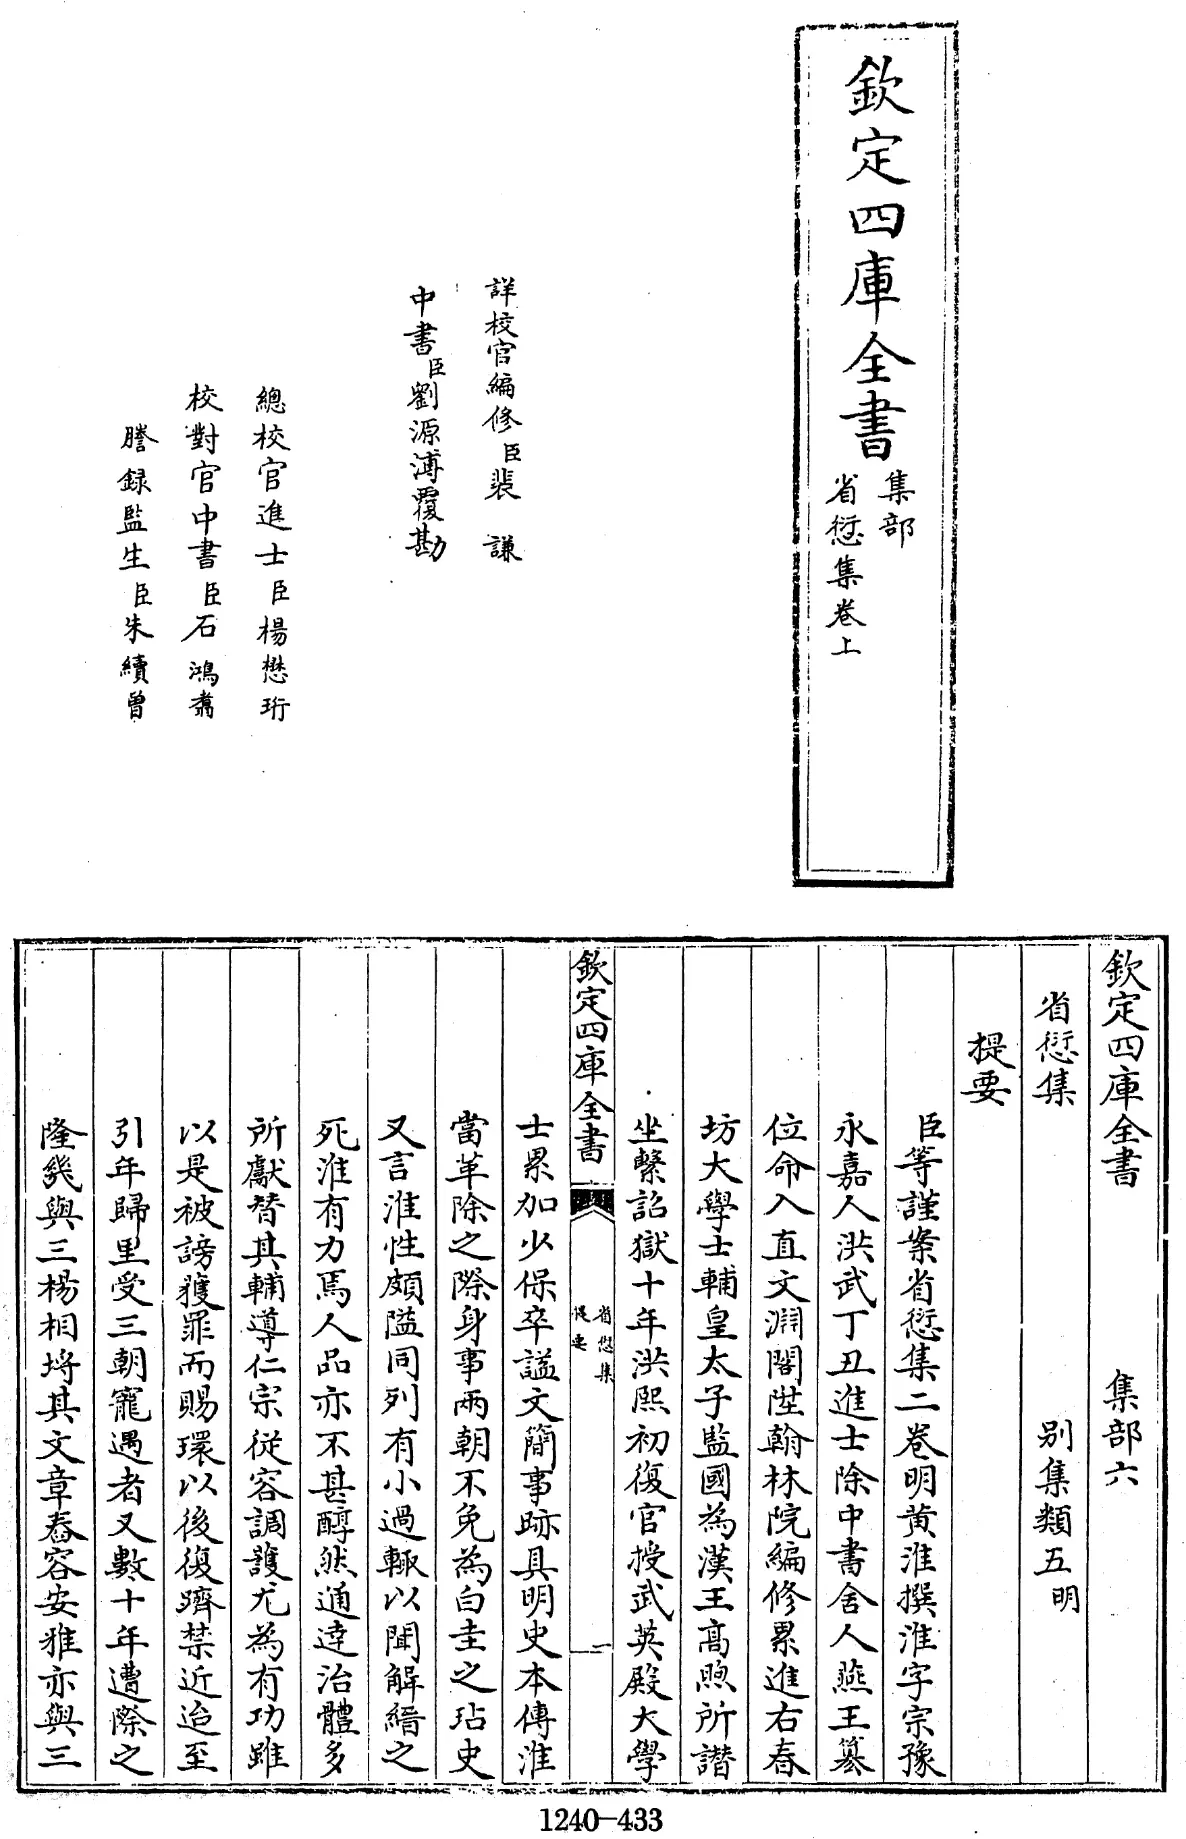 欽定四庫全書
集部
省愆集卷上
詳校官編修臣裴謙
中書臣劉源溥覆勘
總校官進士臣楊懋珩
校對官中書臣石鴻翥
謄録監生臣朱續曾
欽定四庫全書 集部六
省愆集 别集類五明
提要
臣等謹案省愆集二卷明黄淮撰淮字宗豫
永嘉人洪武丁丑進士除中書舍人燕王篡
位命入直文淵閣陞翰林院編修累進右春
坊大學士輔皇太子監國為漢王高煦所譖
坐繫詔獄十年洪熙初復官授武英殿大學
欽定四庫全書
省愆集
提要
一
士累加少保卒諡文簡事跡具明史本傳淮
當革除之際身事兩朝不免為白圭之玷史
又言淮性頗隘同列有小過輒以聞解縉之
死淮有力焉人品亦不甚醇然通達治體多
所獻替其輔導仁宗從容調護尤為有功雖
以是被謗獲罪而賜環以後復躋禁近迨至
引年歸里受三朝寵遇者又數十年遭際之
隆幾與三楊相埒其文章舂容安雅亦與三
1240-433